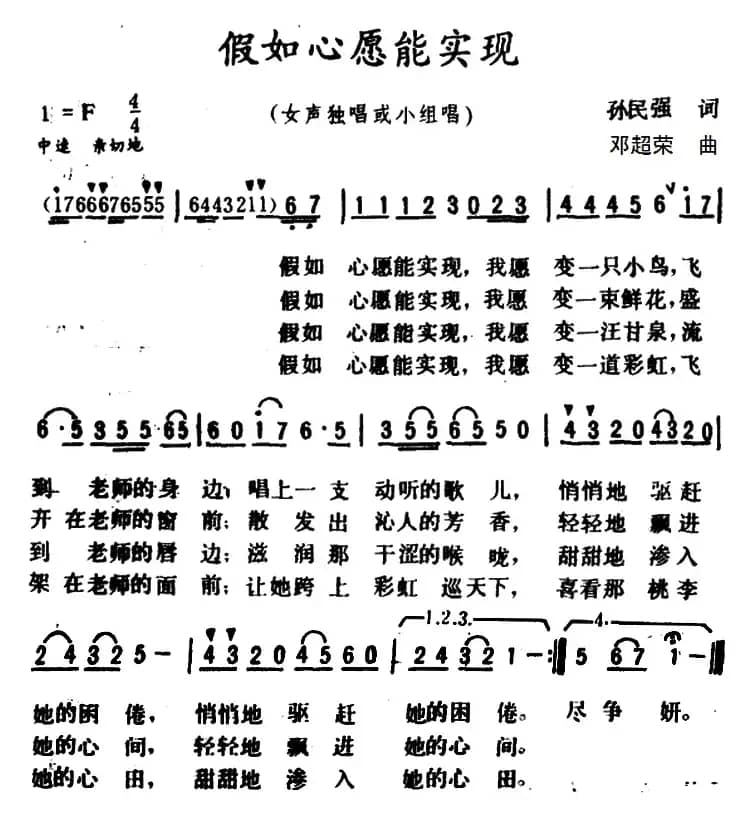 假如心愿能实现
1=F 4/4 （女声独唱或小组唱） 孙民强 词
中速 亲切地 邓超荣 曲
(1766676555 | 64432 11) 6 7 | 1 1 1 2 3 0 2 3 | 4 4 4 5 6 1 7 |
假如 心愿能实现，我愿 变一只小鸟，飞
假如 心愿能实现，我愿 变一束鲜花，盛
假如 心愿能实现，我愿 变一汪甘泉，流
假如 心愿能实现，我愿 变一道彩虹，飞
6·5 3 5 5 6 5 | 6 0 1 7 6·5 | 3 5 5 6 5 5 0 | 4 3 2 0 4 3 2 0 |
到 老师的身边；唱上一支 动听的歌儿， 悄悄地 驱赶
开在老师的窗前；散发出 沁人的芳香， 轻轻地 飘进
到 老师的唇边；滋润那 干涩的喉咙， 甜甜地 渗入
架在老师的面前；让她跨上 彩虹 巡天下， 喜看那 桃李
1.2.3. 4.
2 4 3 2 5 – | 4 3 2 0 4 5 6 0 | 2 4 3 2 1 – :‖ 5 6 7 1 – ‖
她的困倦， 悄悄地 驱赶 她的困倦。 尽争 妍。
她的心间， 轻轻地 飘进 她的心间。
她的心田， 甜甜地 渗入 她的心田。